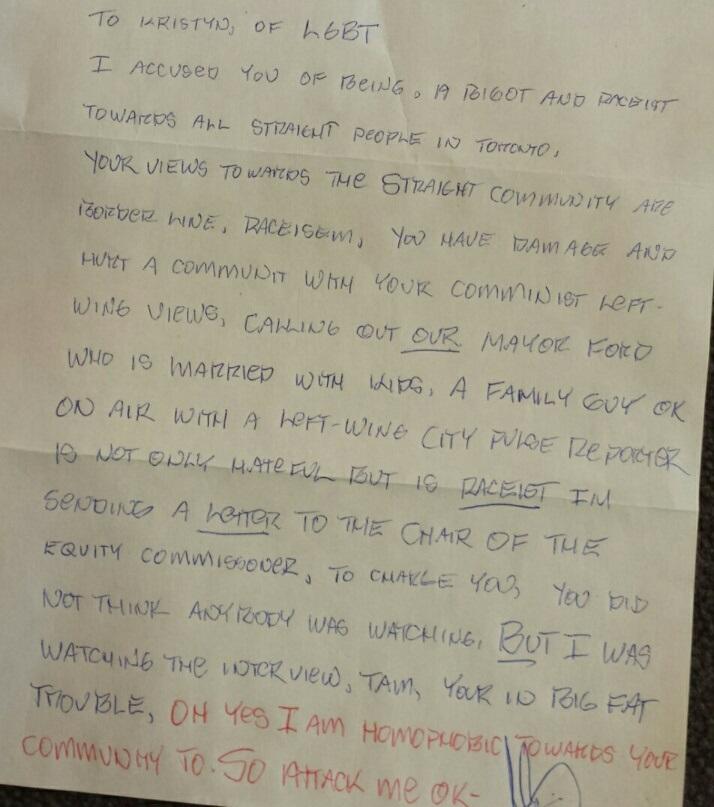 TO KRISTYN, OF LGBT
I ACCUSED YOU OF BEING, A BIGOT AND RACEIST
TOWARDS ALL STRAIGHT PEOPLE IN TORONTO,
YOUR VIEWS TOWARDS THE STRAIGHT COMMUNITY ARE
BORDER LINE, RACEISEM, YOU HAVE DAMAGE AND
HURT A COMMUNIT WITH YOUR COMMINIST LEFT-
WING VIEWS, CALLING OUT OUR MAYOR FORD
WHO IS MARRIED WITH KIDS, A FAMILY GUY OK
ON AIR WITH A LEFT-WING CITY PULSE REPORTER
IS NOT ONLY HATEFUL BUT IS RACEIST IM
SENDING A LETTER TO THE CHAIR OF THE
EQUITY COMMISSONER, TO CHARGE YOU, YOU DID
NOT THINK ANYBODY WAS WATCHING, BUT I WAS
WATCHING THE INTERVIEW, TAM, YOUR IN BIG FAT
TROUBLE, OH YES I AM HOMOPHOBIC TOWARDS YOUR
COMMUNITY TO. SO ATTACK ME OK-